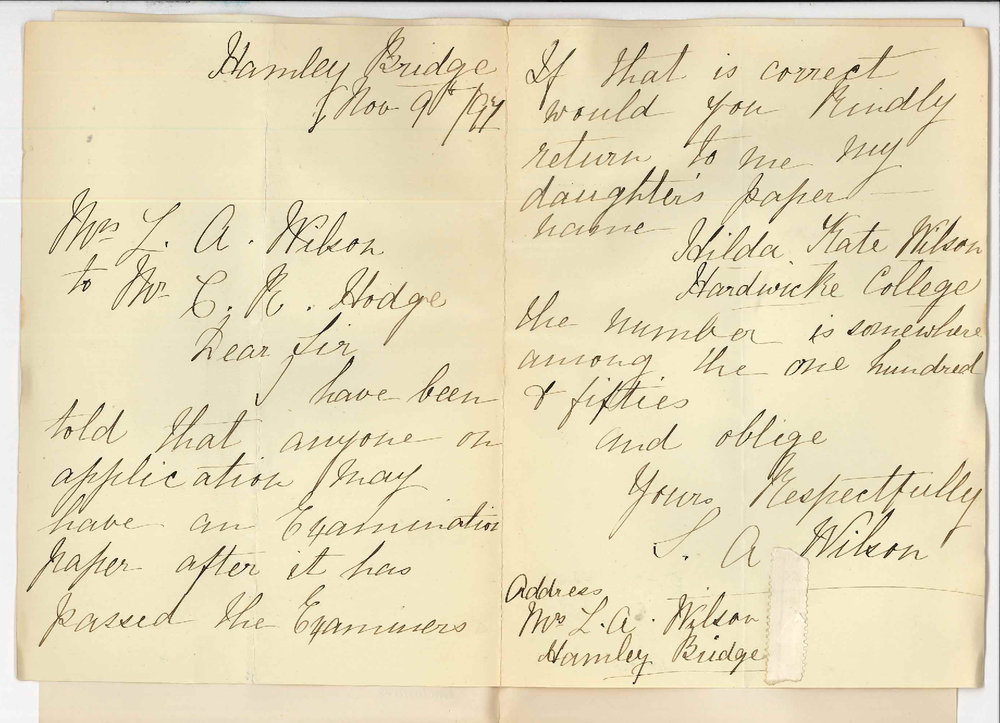 Hamley Bridge
Nov 9th /97
Mrs L. A. Wilson
to Mr C. R. Hodge
Dear Sir
I have been
told that anyone on
application may
have an Examination
paper after it has
passed the Examiners
If that is correct
would you kindly
return to me my
daughter's paper —
name
Hilda Kate Wilson
Hardwicke College
the number is somewhere
among the one hundred
& fifties
and oblige
Yours Respectfully
L. A Wilson
Address
Mrs L. A. Wilson
Hamley Bridge